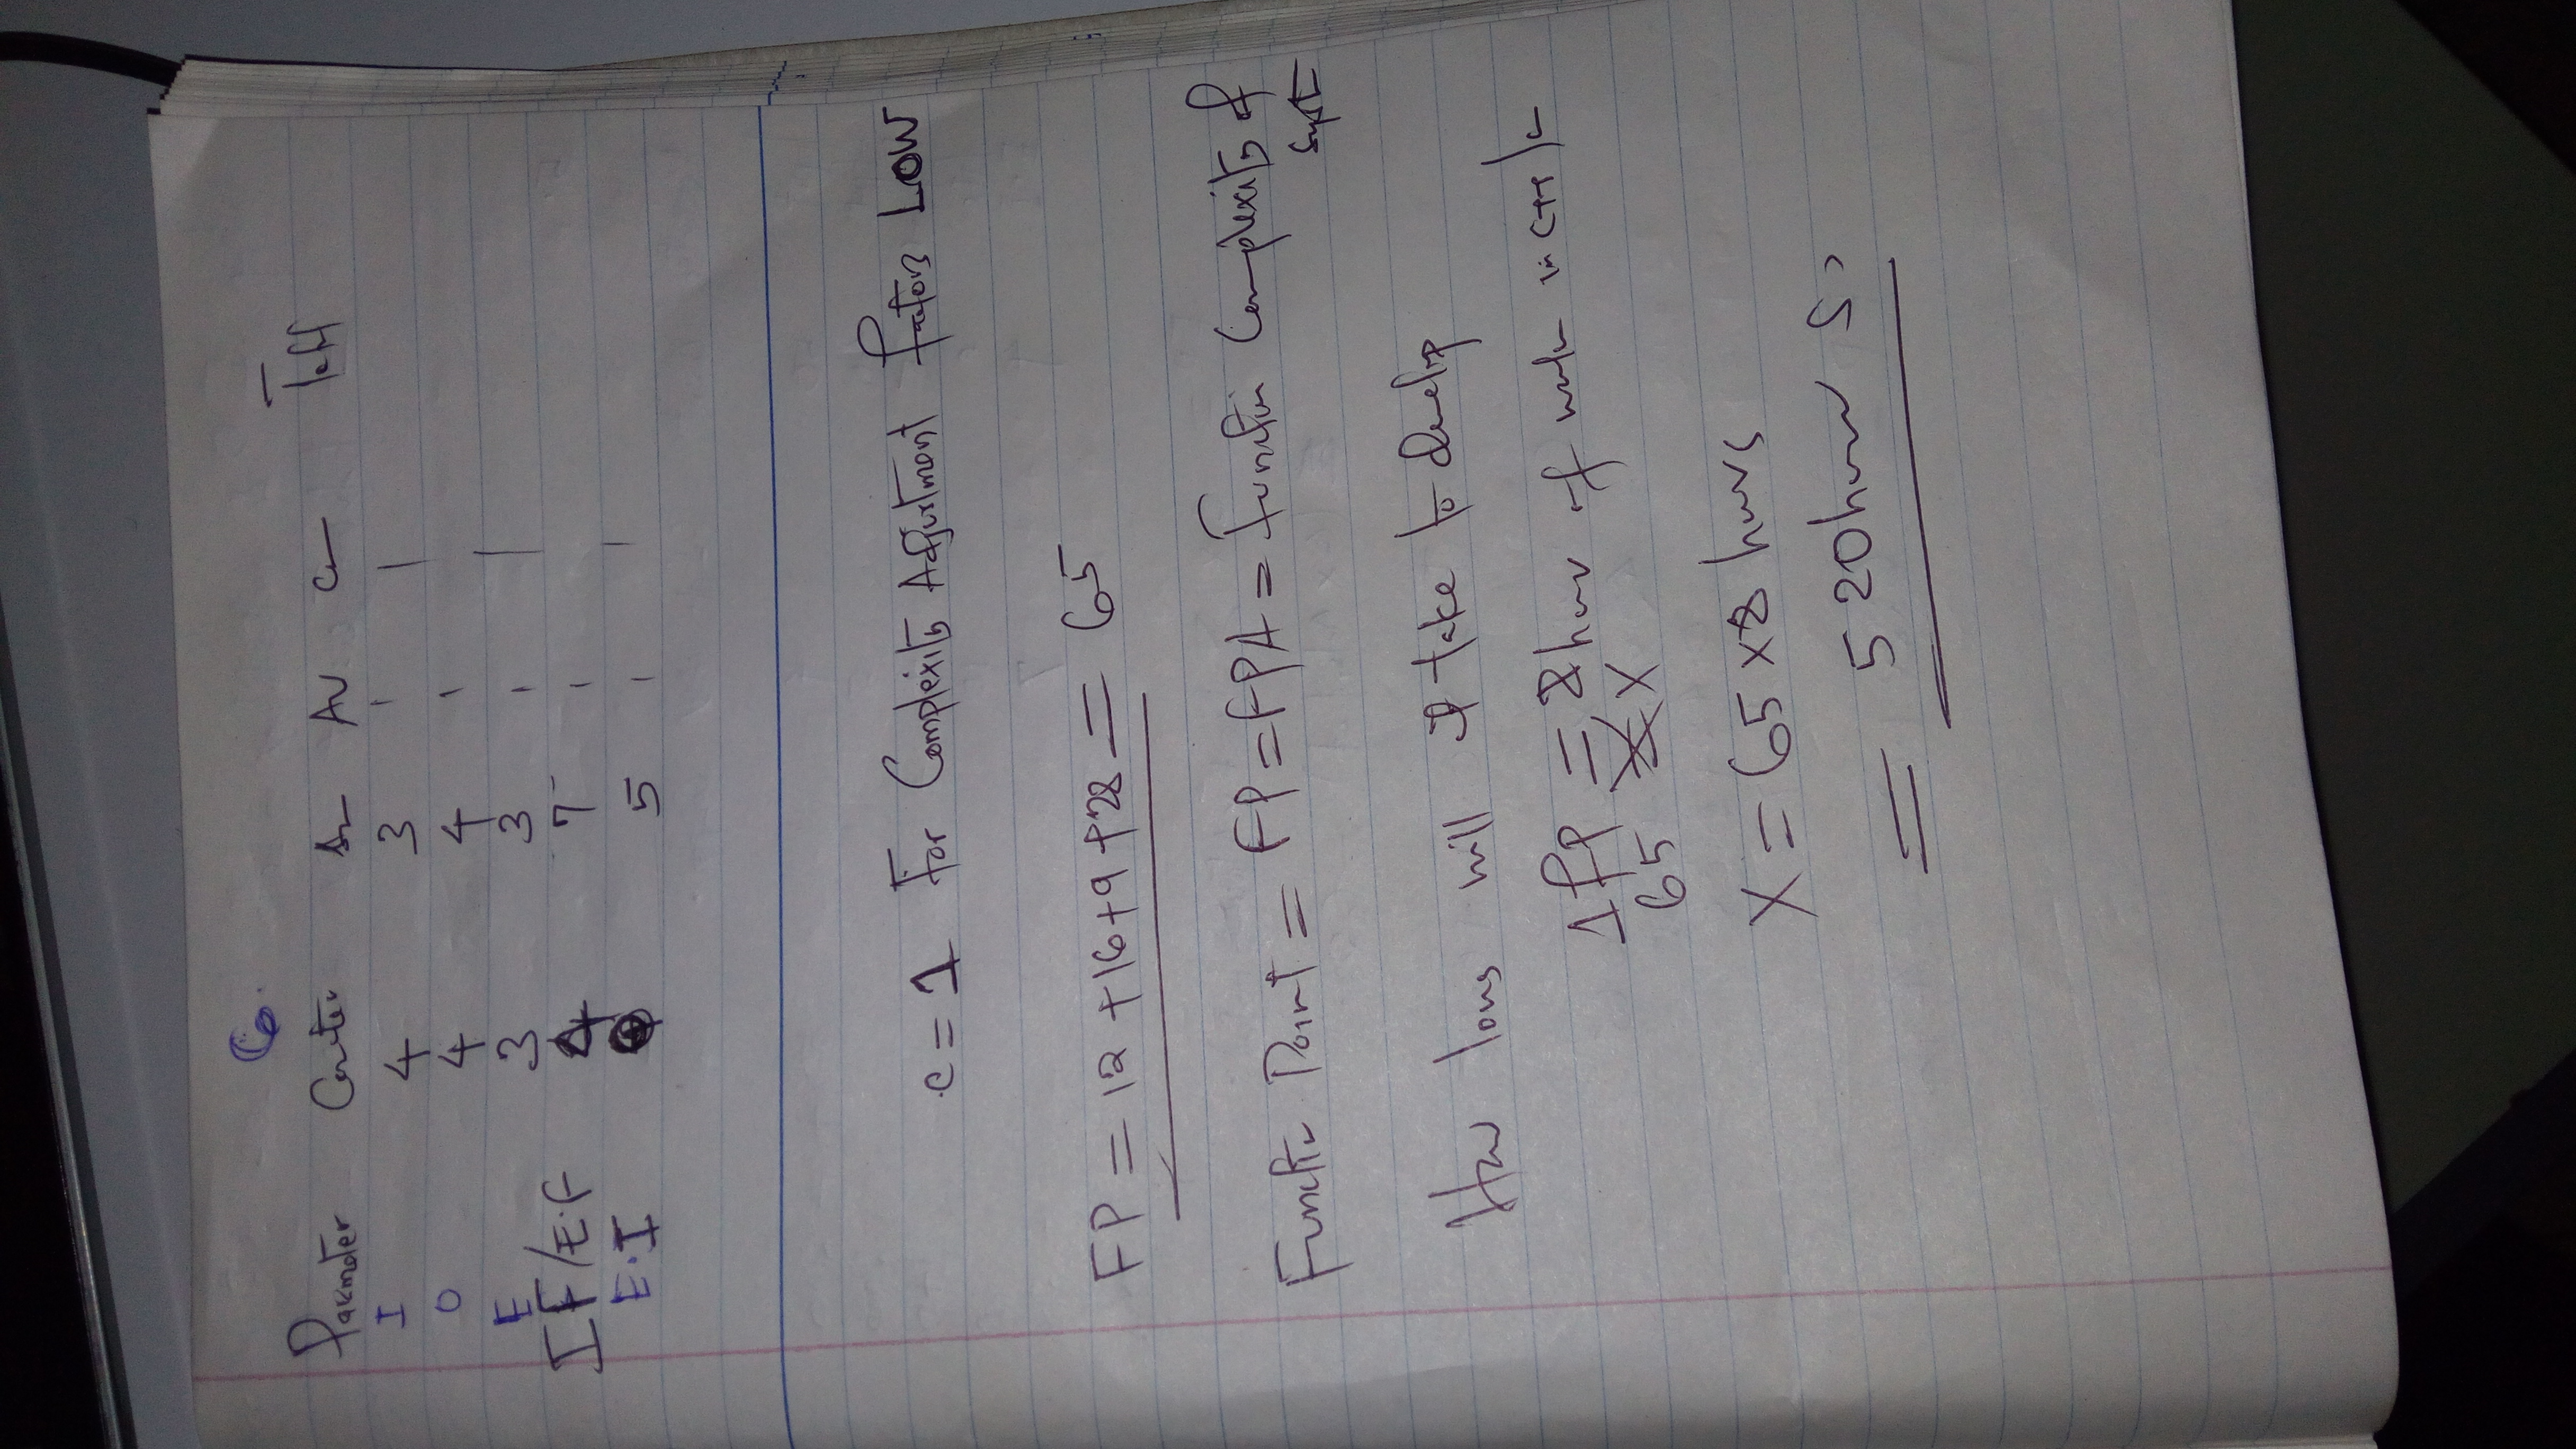 6.
Parameter Counter Sm Av C Total
I 4 3 - -
O 4 4 -
E 3 3 - -
IF/E.F 4 7 -
E.I 5 - -
c = 1 For Complexity Adjustment factors LOW
FP = 12 + 16 + 9 + 28 = 65
Function Point = FP = FPA = function Complexity of
How long will it take to develop
1 FP = 8 hour of work in C++
65 X
X = 65 x 8 hours
= 520 hours